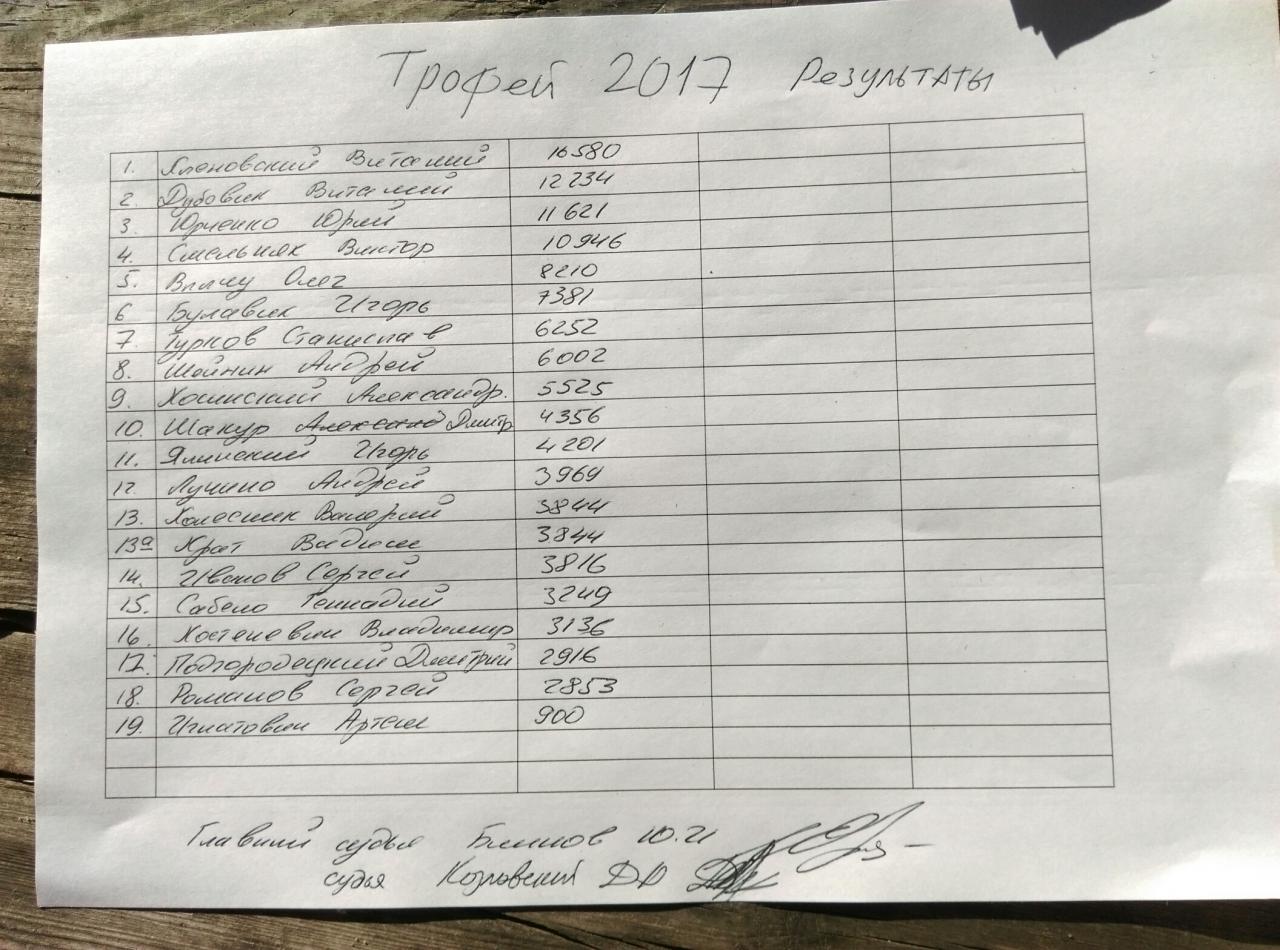 Трофей 2017 Результаты
1. Хленовский Виталий 16580
2. Дубовик Виталий 12234
3. Юрченко Юрий 11621
4. Смельняк Виктор 10946
5. Олег 8210
6 Булавик Игорь 7381
7. Гурков Станислав 6252
8. Шейнин Андрей 6002
9. Александр. 5525
10. Шакур Дмитр 4356
11. Ялинский Игорь 4201
12. Андрей 3969
13. Колесник Валерий 3844
13а Крот Вадим 3844
14. Иванов Сергей 3816
15. Сабело Геннадий 3249
16. Костеневич Владимир 3136
17. Подгородецкий Дмитрий 2916
18. Романов Сергей 2853
19. Игнатович Артем 900
Главный судья Блинов Ю.И
судья Козловский ДЮ